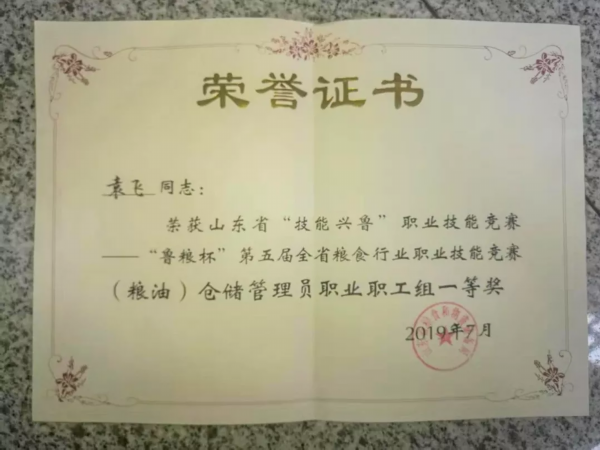 荣誉证书
袁飞 同志：
荣获山东省“技能兴鲁”职业技能竞赛
——“鲁粮杯”第五届全省粮食行业职业技能竞赛
（粮油）仓储管理员职业职工组一等奖
2019年7月